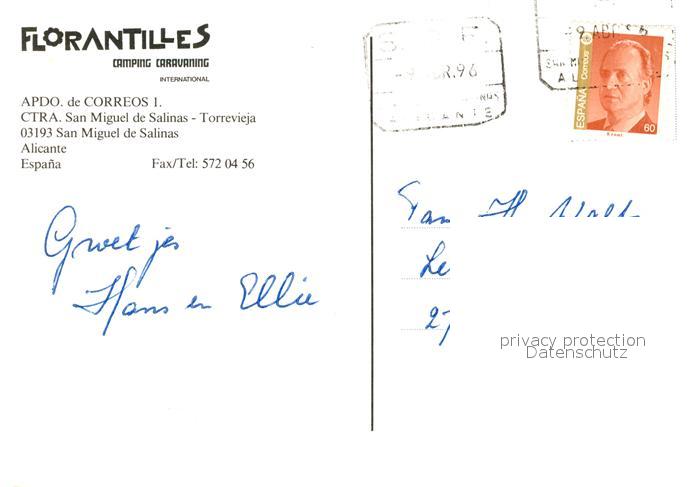 FLORANTILLES
CAMPING CARAVANING
INTERNATIONAL
APDO. de CORREOS 1.
CTRA. San Miguel de Salinas - Torrevieja
03193 San Miguel de Salinas
Alicante
España Fax/Tel: 572 04 56
Groetjes
Hans en Ellie
ESPAÑA Correos
60
Fam
Le
privacy protection
Datenschutz